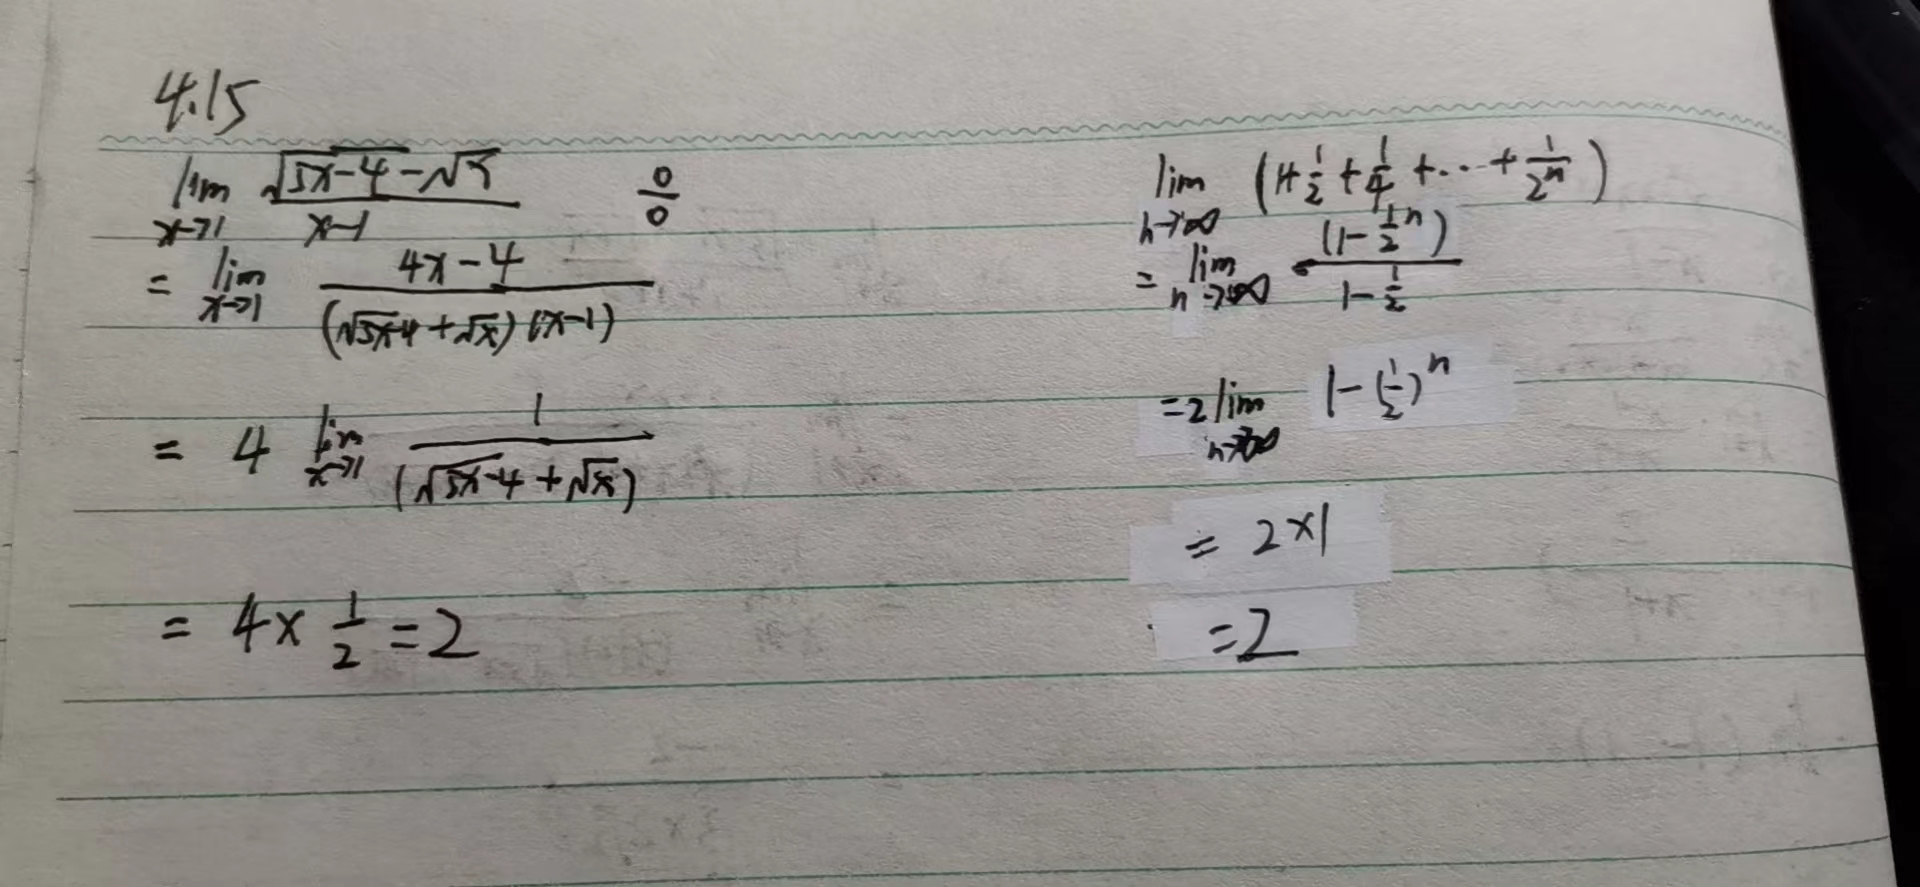 4.15
lim x→1 (√(5x-4) - √x)/(x-1) 0/0
= lim x→1 (4x-4)/((√(5x-4) + √x)(x-1))
= 4 lim x→1 1/(√(5x-4) + √x)
= 4 × 1/2 = 2
lim n→∞ (1+1/2+1/4+...+1/2ⁿ)
= lim n→∞ (1-1/2ⁿ)/(1-1/2)
=2 lim n→∞ 1-(1/2)ⁿ
= 2×1
=2